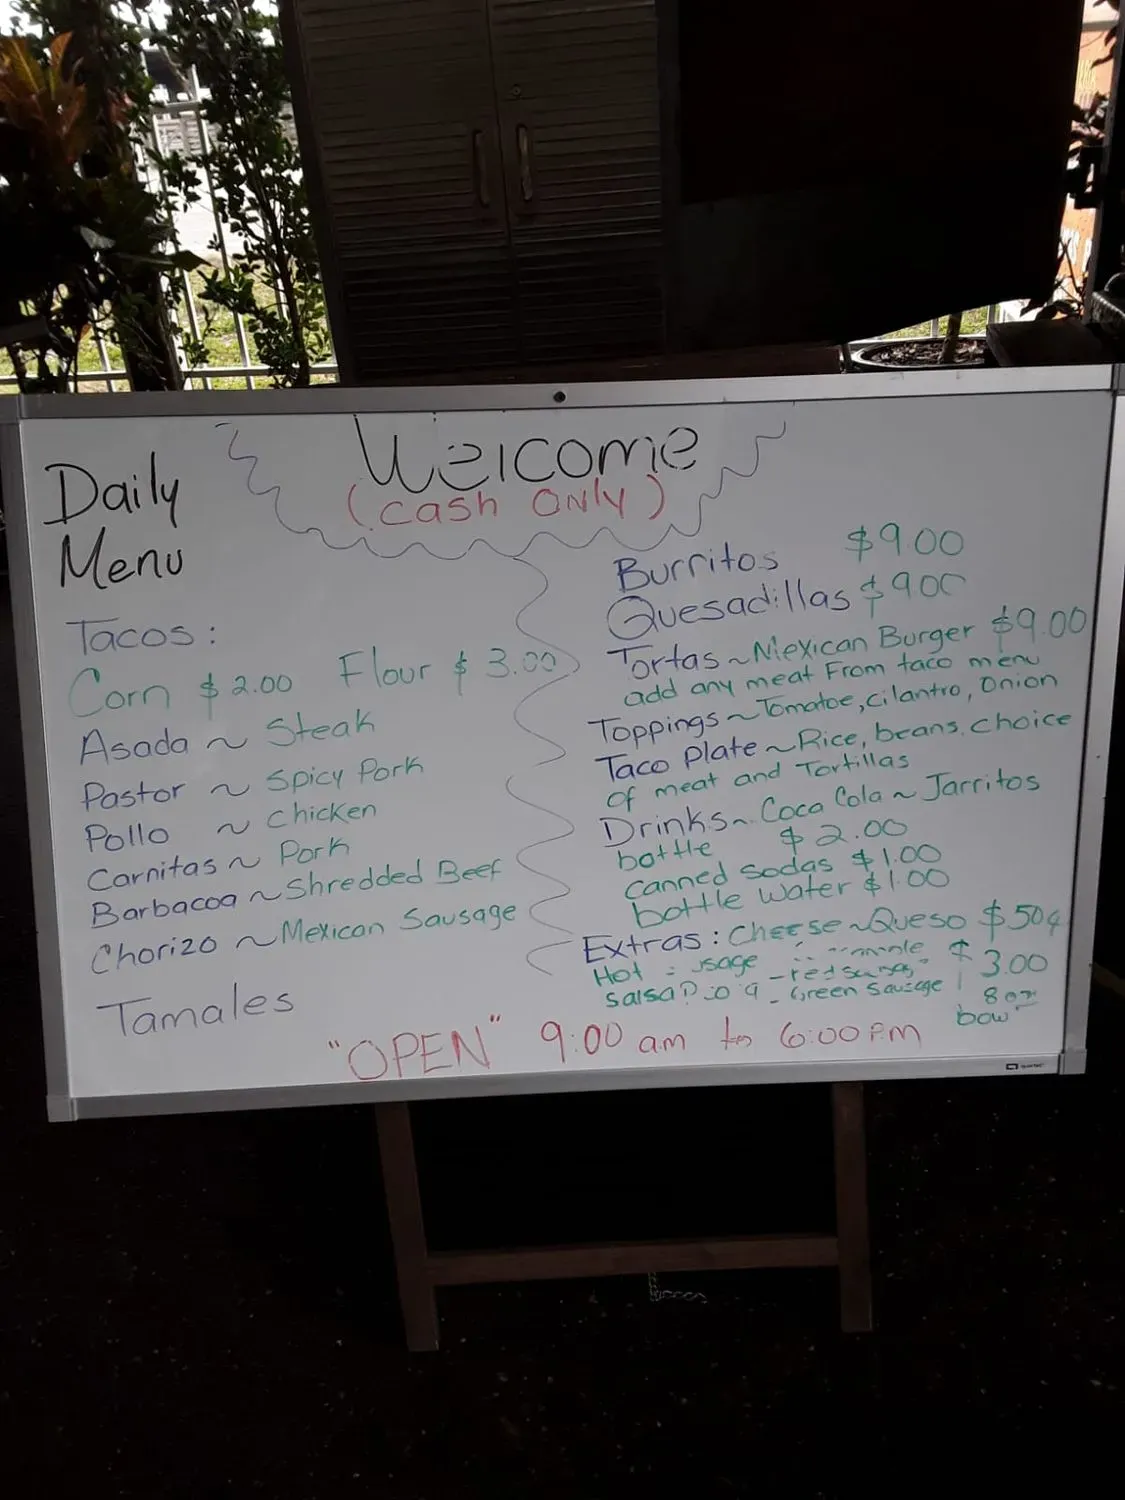 Welcome
(Cash Only)
Daily
Menu
Tacos:
Corn $2.00 Flour $3.00
Asada ~ Steak
Pastor ~ Spicy Pork
Pollo ~ Chicken
Carnitas ~ Pork
Barbacoa ~ Shredded Beef
Chorizo ~ Mexican Sausage
Tamales
Burritos $9.00
Quesadillas $9.00
Tortas ~ Mexican Burger $9.00
add any meat From taco menu
Toppings ~ Tomatoe, cilantro, Onion
Taco Plate ~ Rice, beans, choice
of meat and Tortillas
Drinks ~ Coca Cola ~ Jarritos
bottle $2.00
canned sodas $1.00
bottle water $1.00
Extras: Cheese ~ Queso $50¢
Hot $3.00
Green Sausage 8oz
bowl
"OPEN" 9:00 am to 6:00 P.M